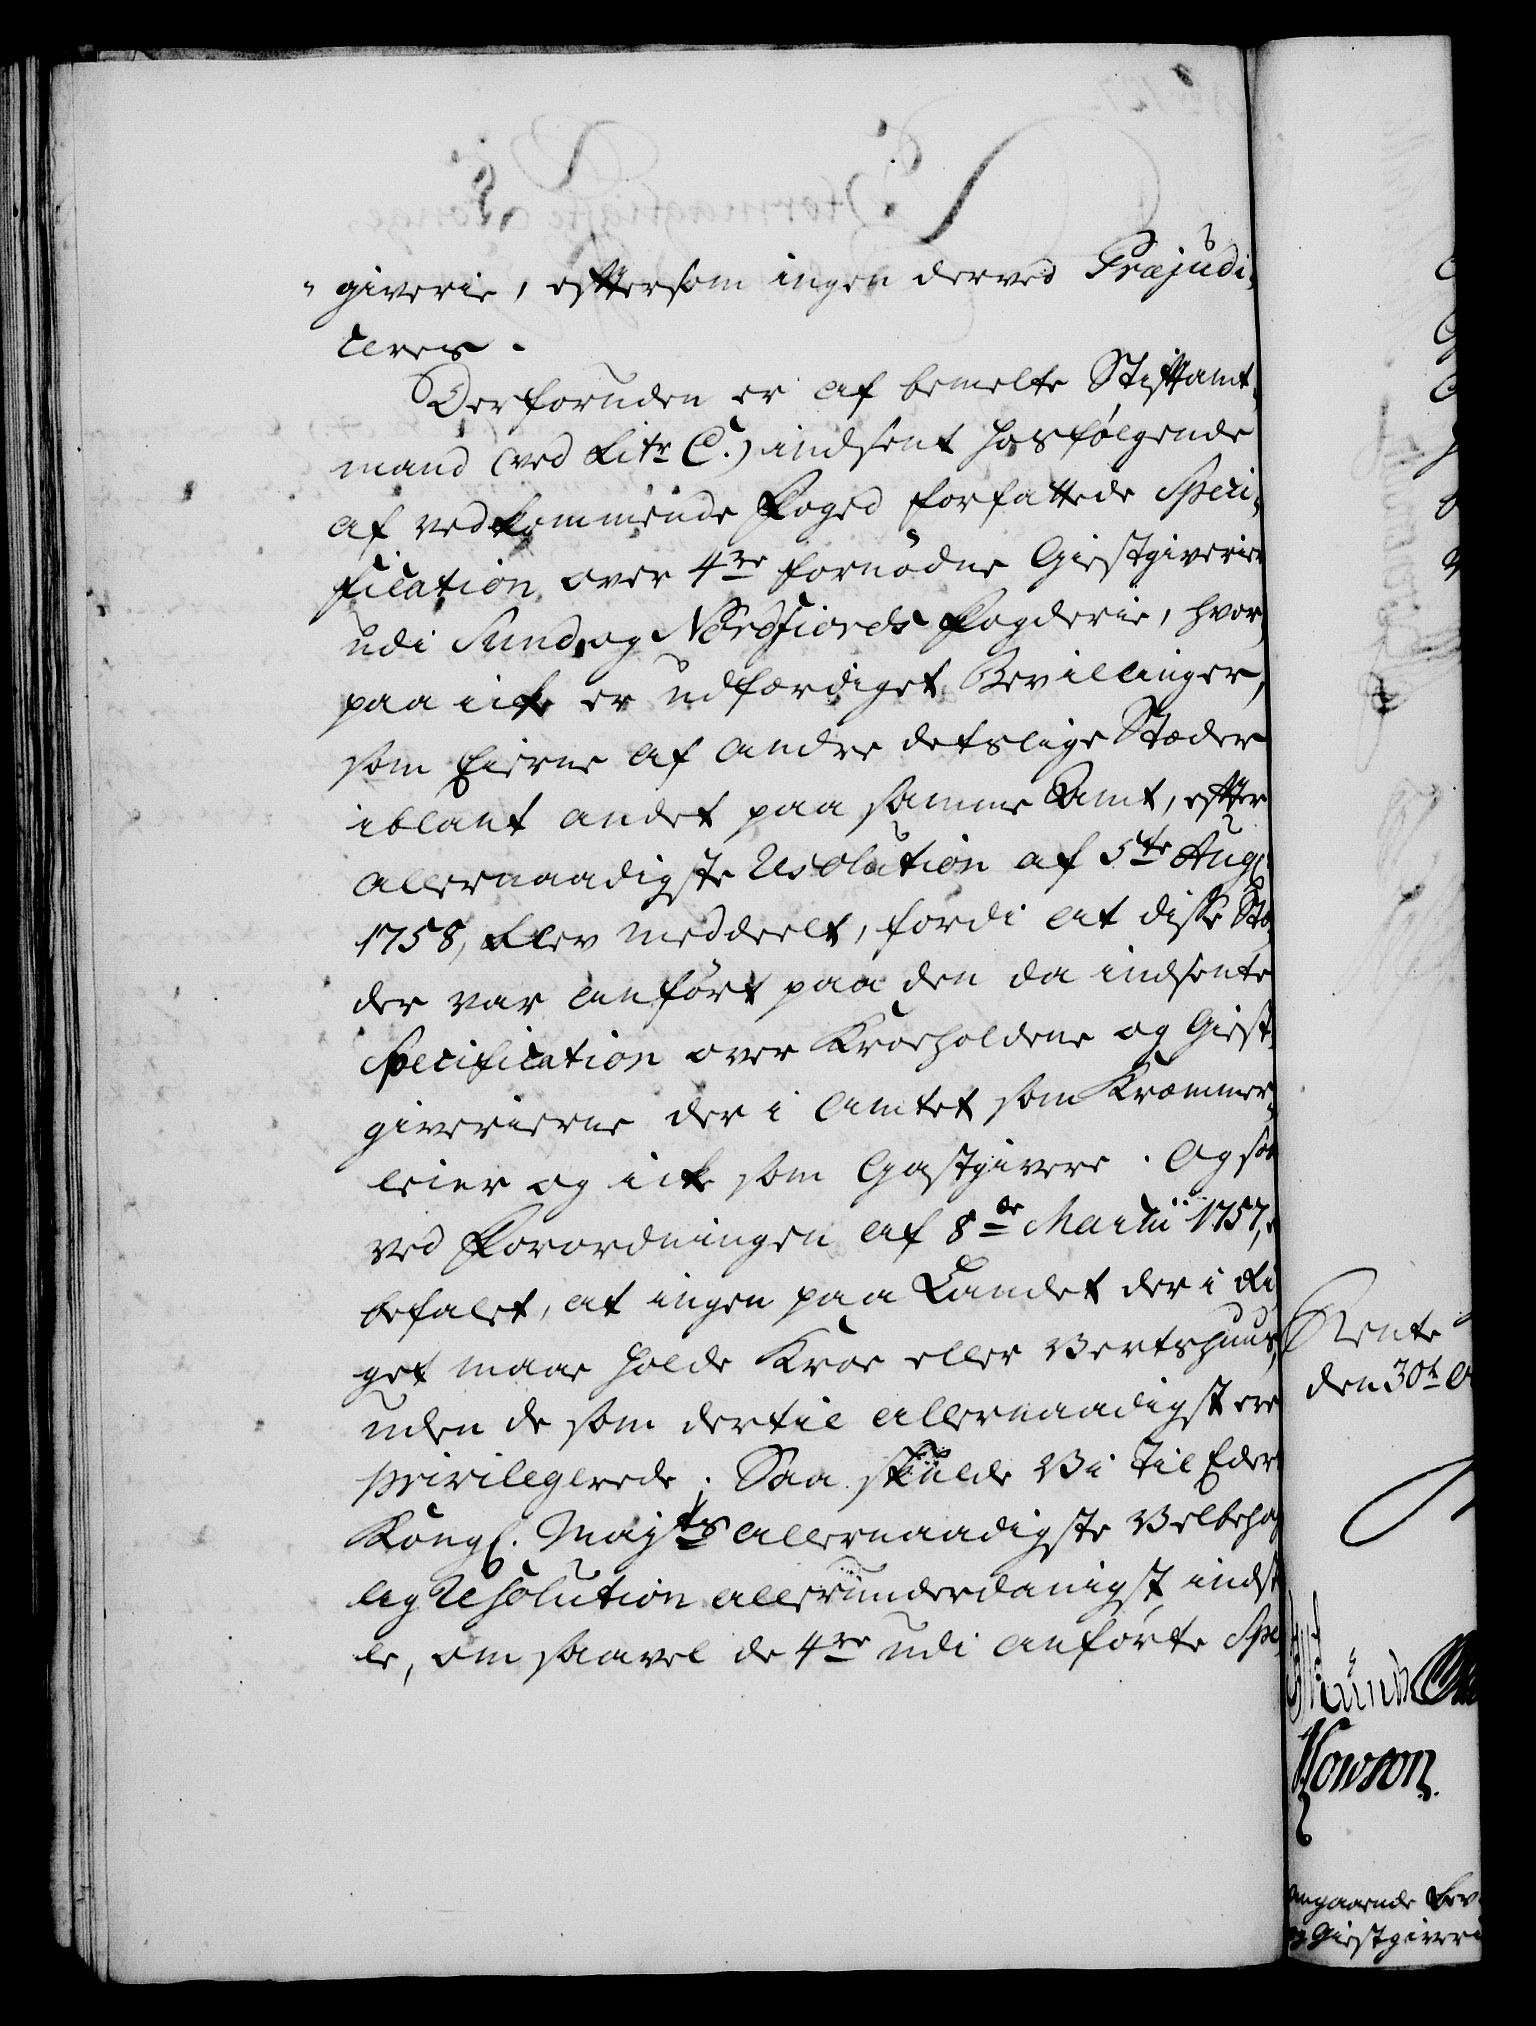 " giverie, eftersom ingen derved Præjudi-
ceres.
Desforuden er af bemelte Stiftamt-
mand (ved Litr C.) indsent hosfølgende
af vedkommende Foged forfattede Speci-
fication over 4re fornødne Giestgiverier
udi Sund og Nordfiords Fogderie, hvor-
paa icke er udfærdiget Bevillinger,
som Eierne af andre detslige Stæder
iblant andet paa samme Amt, efter
allernaadigste Resolution af 5te Augl.
1758, blev meddeelt, fordi at disse Stæ-
der var anført paa den da indsente
Specification over Kroeholdene og Giest-
giverierne der i Amtet som Kræmmer-
leier og icke som Gæstgivere. Og som
ved Forordningen af 8de Martii 1757, e
befalet, at ingen paa Landet der i Ri-
get maae holde Kroe eller Vertshuus,
uden de som dertil allernaadigst ere
privilegerede; Saa skulde Vi til Eders
Kongl. Mayts allernaadigste Velbehag
lig Resolution allerunderdanigst indstil-
le, om saavel de 4re udi anførte Spe-
Rente
den 30t O
Kowson
angaaende Bev
og Giestgiveri